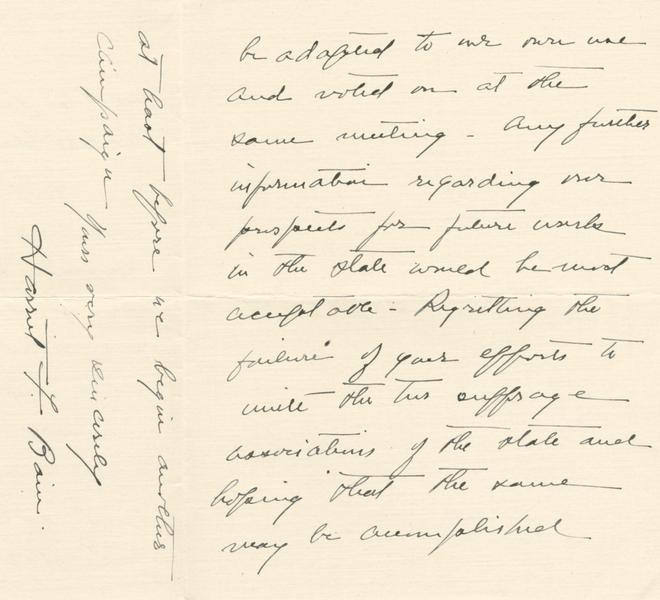 be adapted to our own use
and voted on at the
same meeting - Any further
information regarding our
prospects for future work
in the state would be most
acceptable - Regretting the
failure of your efforts to
unite the two suffrage
associations of the state and
hoping that the same
may be accomplished
at last before we begin another
campaign Yours very sincerely
Harriet F. Bain.